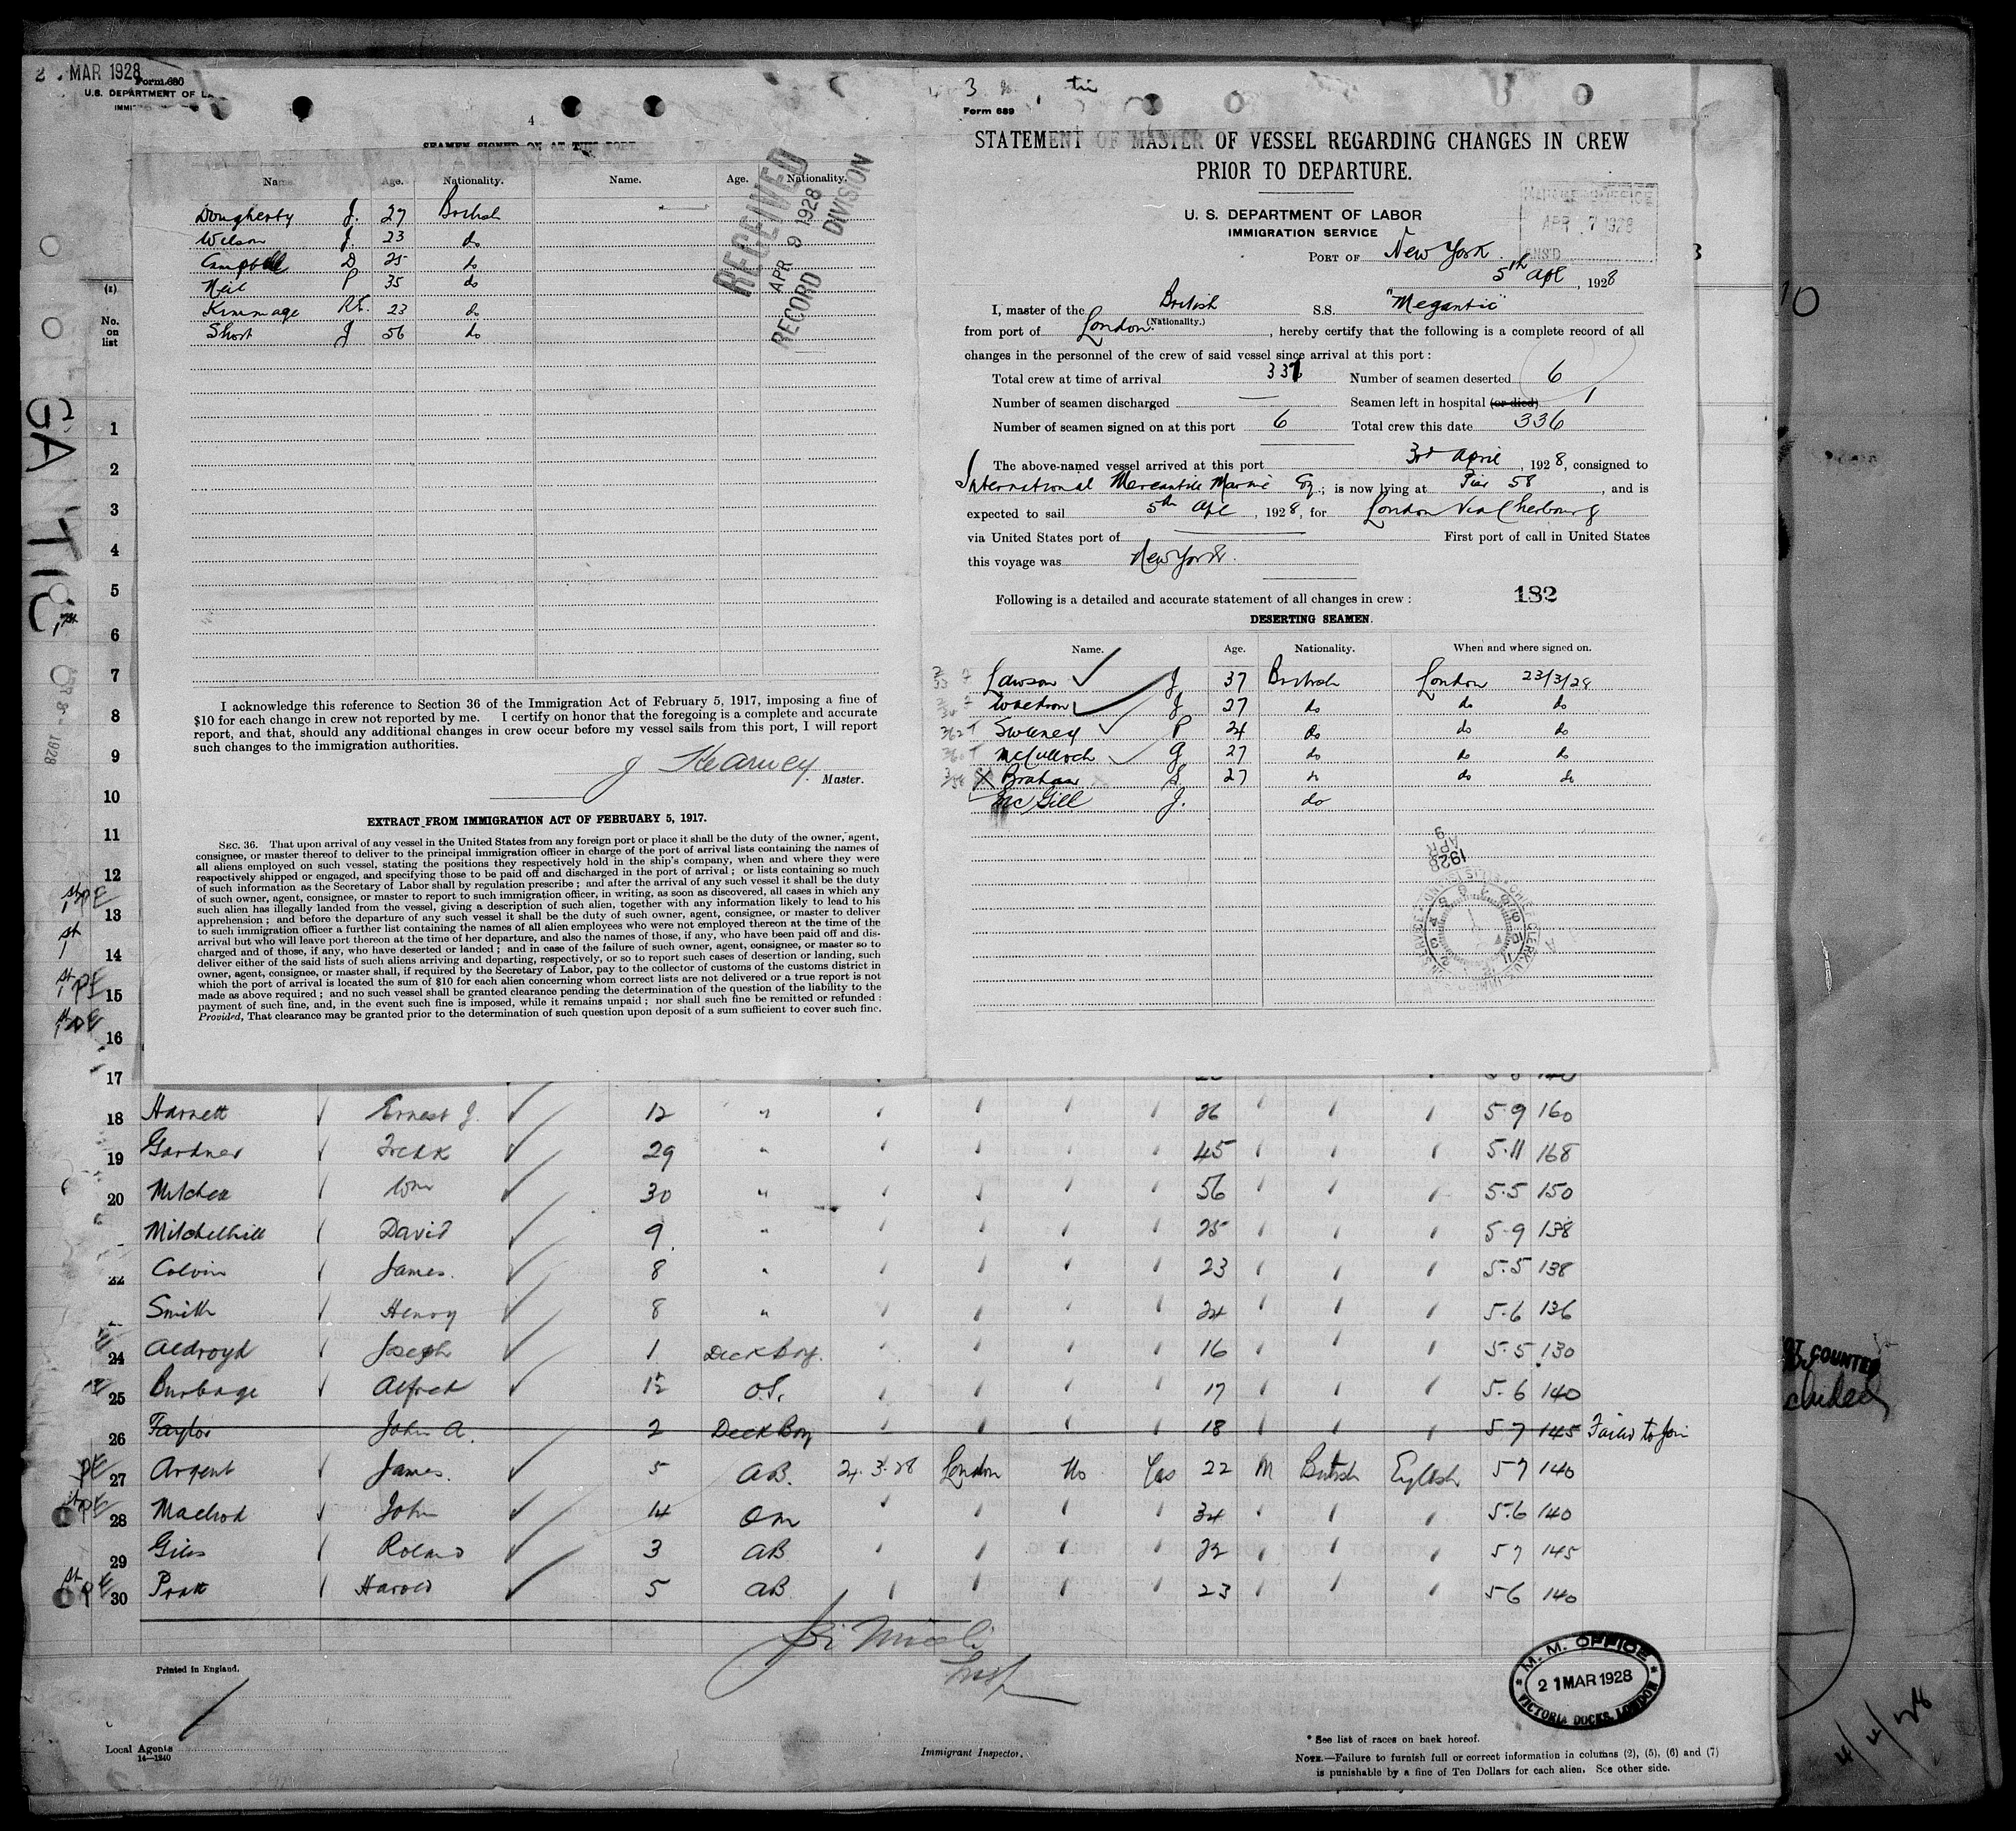 MAR 1928
Form 680
U.S. DEPARTMENT OF LA
IMMI
4
SEAMEN SIGNED ON AT THIS PORT
Name. Age. Nationality. Name. Age. Nationality.
Dougherty J. 27 British
Wilson J. 23 do
Campbell D 25 do
Neil P 35 do
Kimmage RE. 23 do
Short J 56 do
RECEIVED
APR 9 1928
RECORD DIVISION
I acknowledge this reference to Section 36 of the Immigration Act of February 5, 1917, imposing a fine of
$10 for each change in crew not reported by me. I certify on honor that the foregoing is a complete and accurate
report, and that, should any additional changes in crew occur before my vessel sails from this port, I will report
such changes to the immigration authorities.
J Kearney
Master.
EXTRACT FROM IMMIGRATION ACT OF FEBRUARY 5, 1917.
SEC. 36. That upon arrival of any vessel in the United States from any foreign port or place it shall be the duty of the owner, agent,
consignee, or master thereof to deliver to the principal immigration officer in charge of the port of arrival lists containing the names of
all aliens employed on such vessel, stating the positions they respectively hold in the ship's company, when and where they were
respectively shipped or engaged, and specifying those to be paid off and discharged in the port of arrival; or lists containing so much
of such information as the Secretary of Labor shall by regulation prescribe; and after the arrival of any such vessel it shall be the duty
of such owner, agent, consignee, or master to report to such immigration officer, in writing, as soon as discovered, all cases in which any
such alien has illegally landed from the vessel, giving a description of such alien, together with any information likely to lead to his
apprehension; and before the departure of any such vessel it shall be the duty of such owner, agent, consignee, or master to deliver
to such immigration officer a further list containing the names of all alien employees who were not employed thereon at the time of the
arrival but who will leave port thereon at the time of her departure, and also the names of those, if any, who have been paid off and dis-
charged and of those, if any, who have deserted or landed; and in case of the failure of such owner, agent, consignee, or master so to
deliver either of the said lists of such aliens arriving and departing, respectively, or so to report such cases of desertion or landing, such
owner, agent, consignee, or master shall, if required by the Secretary of Labor, pay to the collector of customs of the customs district in
which the port of arrival is located the sum of $10 for each alien concerning whom correct lists are not delivered or a true report is not
made as above required; and no such vessel shall be granted clearance pending the determination of the question of the liability to the
payment of such fine, and, in the event such fine is imposed, while it remains unpaid; nor shall such fine be remitted or refunded:
Provided, That clearance may be granted prior to the determination of such question upon deposit of a sum sufficient to cover such fine.
Form 689
STATEMENT OF MASTER OF VESSEL REGARDING CHANGES IN CREW
PRIOR TO DEPARTURE.
U. S. DEPARTMENT OF LABOR
IMMIGRATION SERVICE
APR 7 1928
PORT OF New York
5th Apl, 1928
I, master of the British S.S. "Megantic"
(Nationality.)
from port of London, hereby certify that the following is a complete record of all
changes in the personnel of the crew of said vessel since arrival at this port:
Total crew at time of arrival 337 Number of seamen deserted 6
Number of seamen discharged — Seamen left in hospital (or died) 1
Number of seamen signed on at this port 6 Total crew this date 336
The above-named vessel arrived at this port 3rd April, 1928, consigned to
International Mercantile Marine Co.; is now lying at Pier 58, and is
expected to sail 5th Apl, 1928, for London Via Cherbourg
via United States port of First port of call in United States
this voyage was New York.
Following is a detailed and accurate statement of all changes in crew: 182
DESERTING SEAMEN.
Name. Age. Nationality. When and where signed on.
Lawson J 37 British London 23/3/28
Waldron J 27 do do do
Sweeney P 24 do do do
McCulloch G 27 do do do
Braham S 27 do do do
McGill J. do
APR 9
1928
GANTIC
(1)
No.
on
list
1
2
3
4
5
6
7
8
9
10
11
12
13
14
15
16
17
18 Harnett Ernest J. 12 " 26 5-9 160
19 Gardner Fredk 29 " 45 5-11 168
20 Mitchell Wm 30 " 56 5-5 150
Mitchelhill David 9 " 25 5-9 138
22 Colvin James 8 " 23 5-5 138
Smith Henry 8 " 24 5-6 136
24 Aldroyd Joseph 1 Deck boy. 16 5-5 130
25 Burbage Alfred 12 O.S. 17 5-6 140
26 Taylor John A. 2 Deck Boy 18 5-7 145 Failed to Join
27 Argent James 5 AB. 2.3.28 London No Yes 22 M British English 5 7 140
28 Macleod John 14 Qm 34 5-6 140
29 Giles Roland 3 AB 22 5 7 145
30 Pratt Harold 5 AB 23 5 6 140
Insp
Printed in England.
M. M. OFFICE
21 MAR 1928
VICTORIA DOCKS, LONDON
Local Agents
14—1240
Immigrant Inspector.
* See list of races on back hereof.
NOTE.—Failure to furnish full or correct information in columns (2), (5), (6) and (7)
is punishable by a fine of Ten Dollars for each alien. See other side.
4/4/28